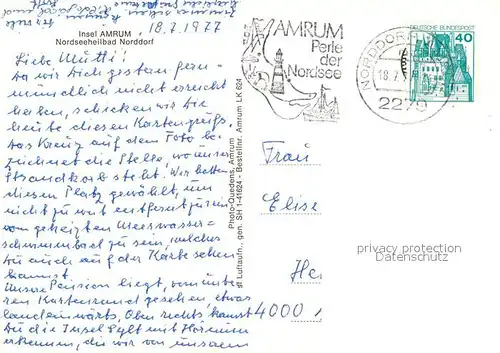 18.7.1977
Insel AMRUM
Nordseeheilbad Norddorf
Liebe Mutti!
Da wir Dich gestern fern-
mündlich nicht erreicht
haben, schicken wir Dir
heute diesen Kartengruß.
Das Kreuz auf dem Foto be-
zeichnet die Stelle, wo unser
Strandkorb steht. Wir hatten
diesen Platz gewählt, um
nicht zu weit entfernt zu sein
vom geheizten Meerwasser-
schwimmbad zu sein, welches
Du auch auf der Karte sehen
kannst.
Unsere Pension liegt, vom unte-
ren Kartenrand gesehen, etwas
landeinwärts. Oben rechts kannst
Du die Insel Sylt mit Hörnum
erkennen, die wir von unserem
Photo-Quedens, Amrum
Luftaufn., gen. SH 1-41624 - Bestellnr. Amrum LK 624
AMRUM
Perle
der
Nordsee
NORDDORF
18.7.
2278
DEUTSCHE BUNDESPOST
40
Frau
Elise
He
4000
privacy protection
Datenschutz